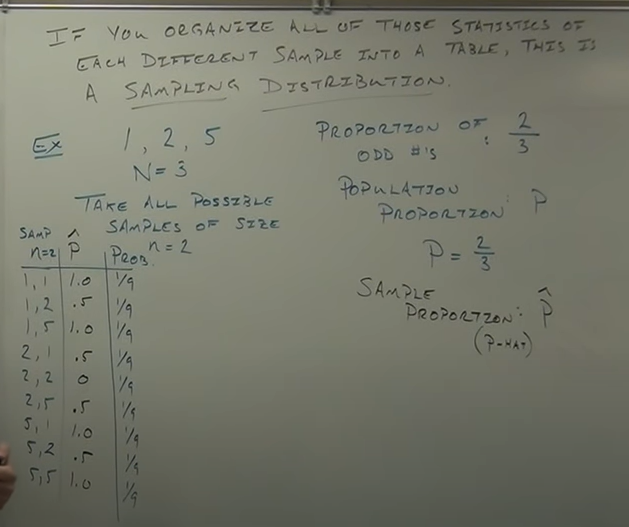 IF YOU ORGANIZE ALL OF THOSE STATISTICS OF
EACH DIFFERENT SAMPLE INTO A TABLE, THIS IS
A SAMPLING DISTRIBUTION.
EX 1, 2, 5
N=3
TAKE ALL POSSIBLE
SAMPLES OF SIZE
n=2
SAMP
n=2 P̂ PROB.
1,1 1.0 1/9
1,2 .5 1/9
1,5 1.0 1/9
2,1 .5 1/9
2,2 0 1/9
2,5 .5 1/9
5,1 1.0 1/9
5,2 .5 1/9
5,5 1.0 1/9
PROPORTION OF : 2/3
ODD #'S
POPULATION
PROPORTION: P
P = 2/3
SAMPLE
PROPORTION: P̂
(P-HAT)